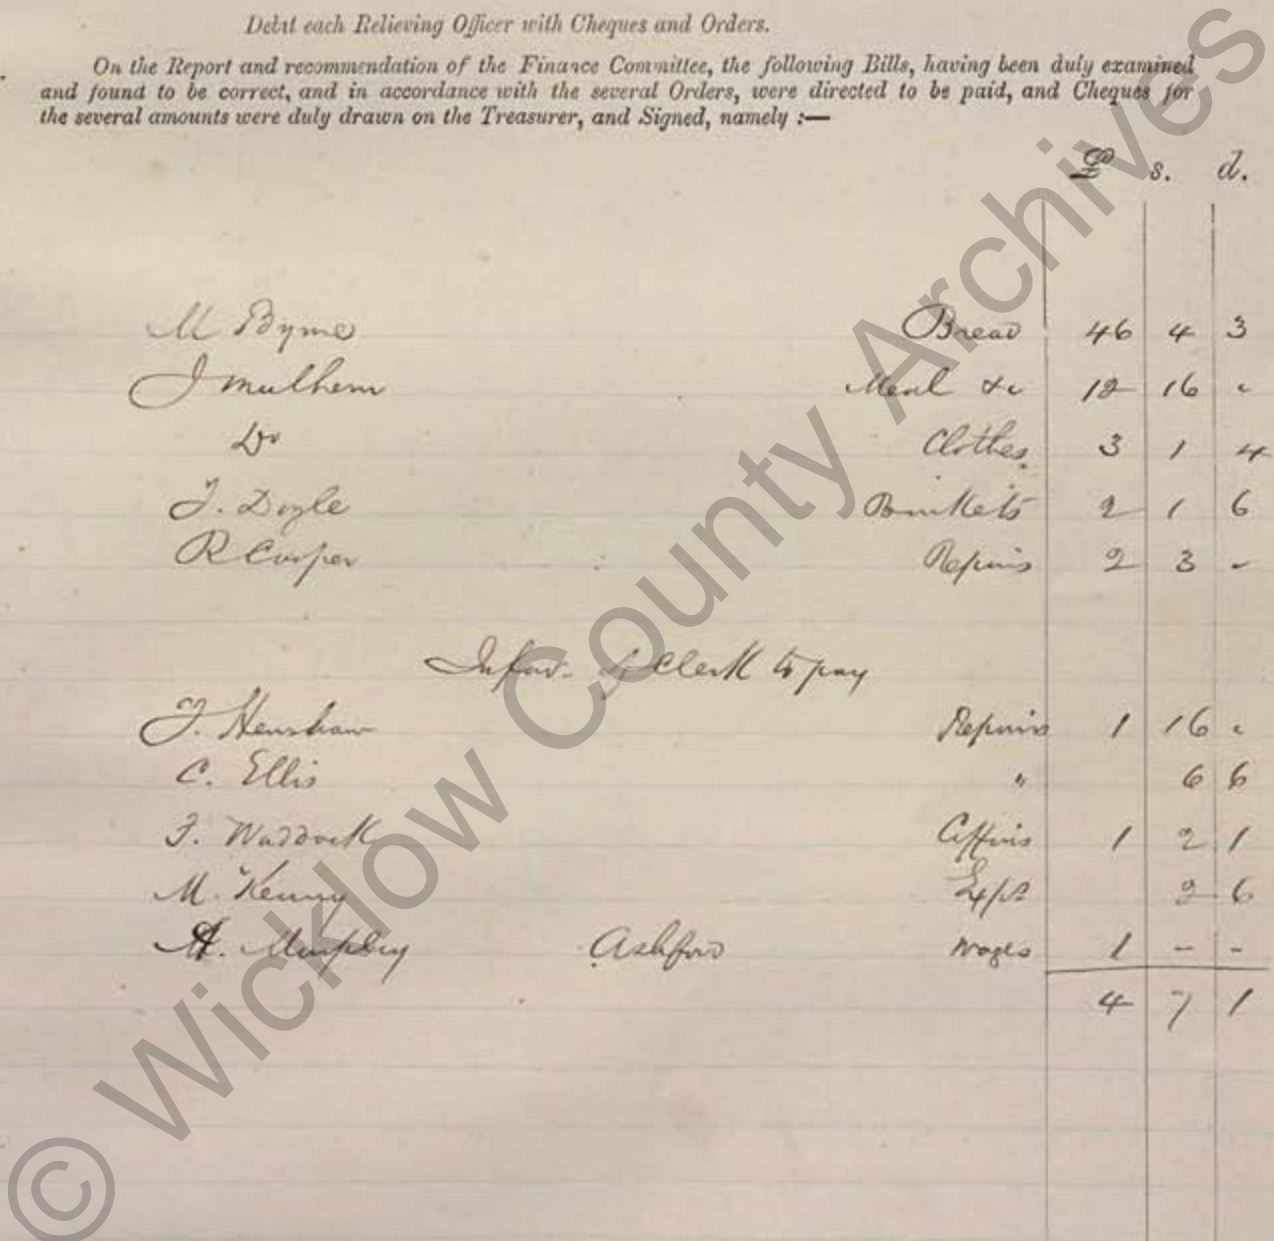 Debit each Relieving Officer with Cheques and Orders.
On the Report and recommendation of the Finance Committee, the following Bills, having been duly examined
and found to be correct, and in accordance with the several Orders, were directed to be paid, and Cheques for
the several amounts were duly drawn on the Treasurer, and Signed, namely :—
£ s. d.
M Byrne Bread 46 4 3
J Mulhern Meal &c 12 16 -
Do Clothes 3 1 4
J. Doyle 2 1 6
R Cooper Repairs 2 3 -
In fav. of Clerk to pay
J. Henshaw Repairs 1 16 -
C. Ellis " 6 6
J. Waddock Coffins 1 2 1
M. Kenny 2 6
A. Murphy Ashford Wages 1 - -
4 7 1
© Wicklow County Archives